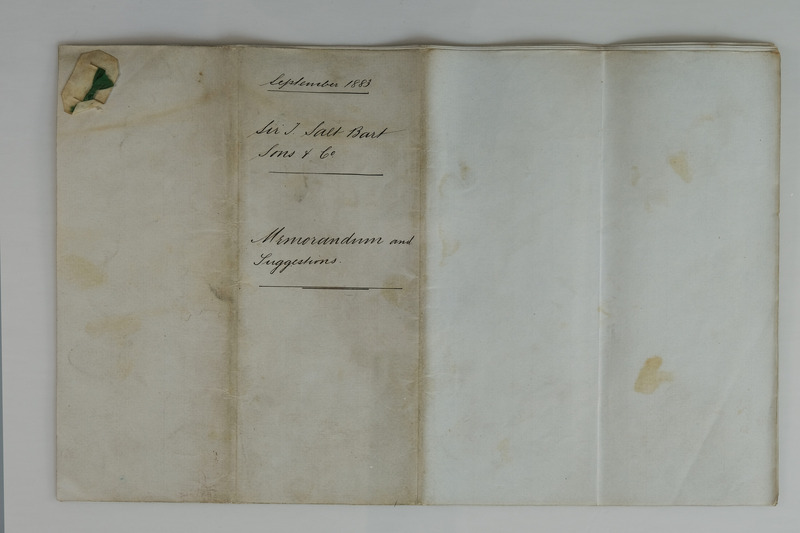 September 1883
Sir T Salt Bart
Sons & Co
Memorandum and
Suggestions.